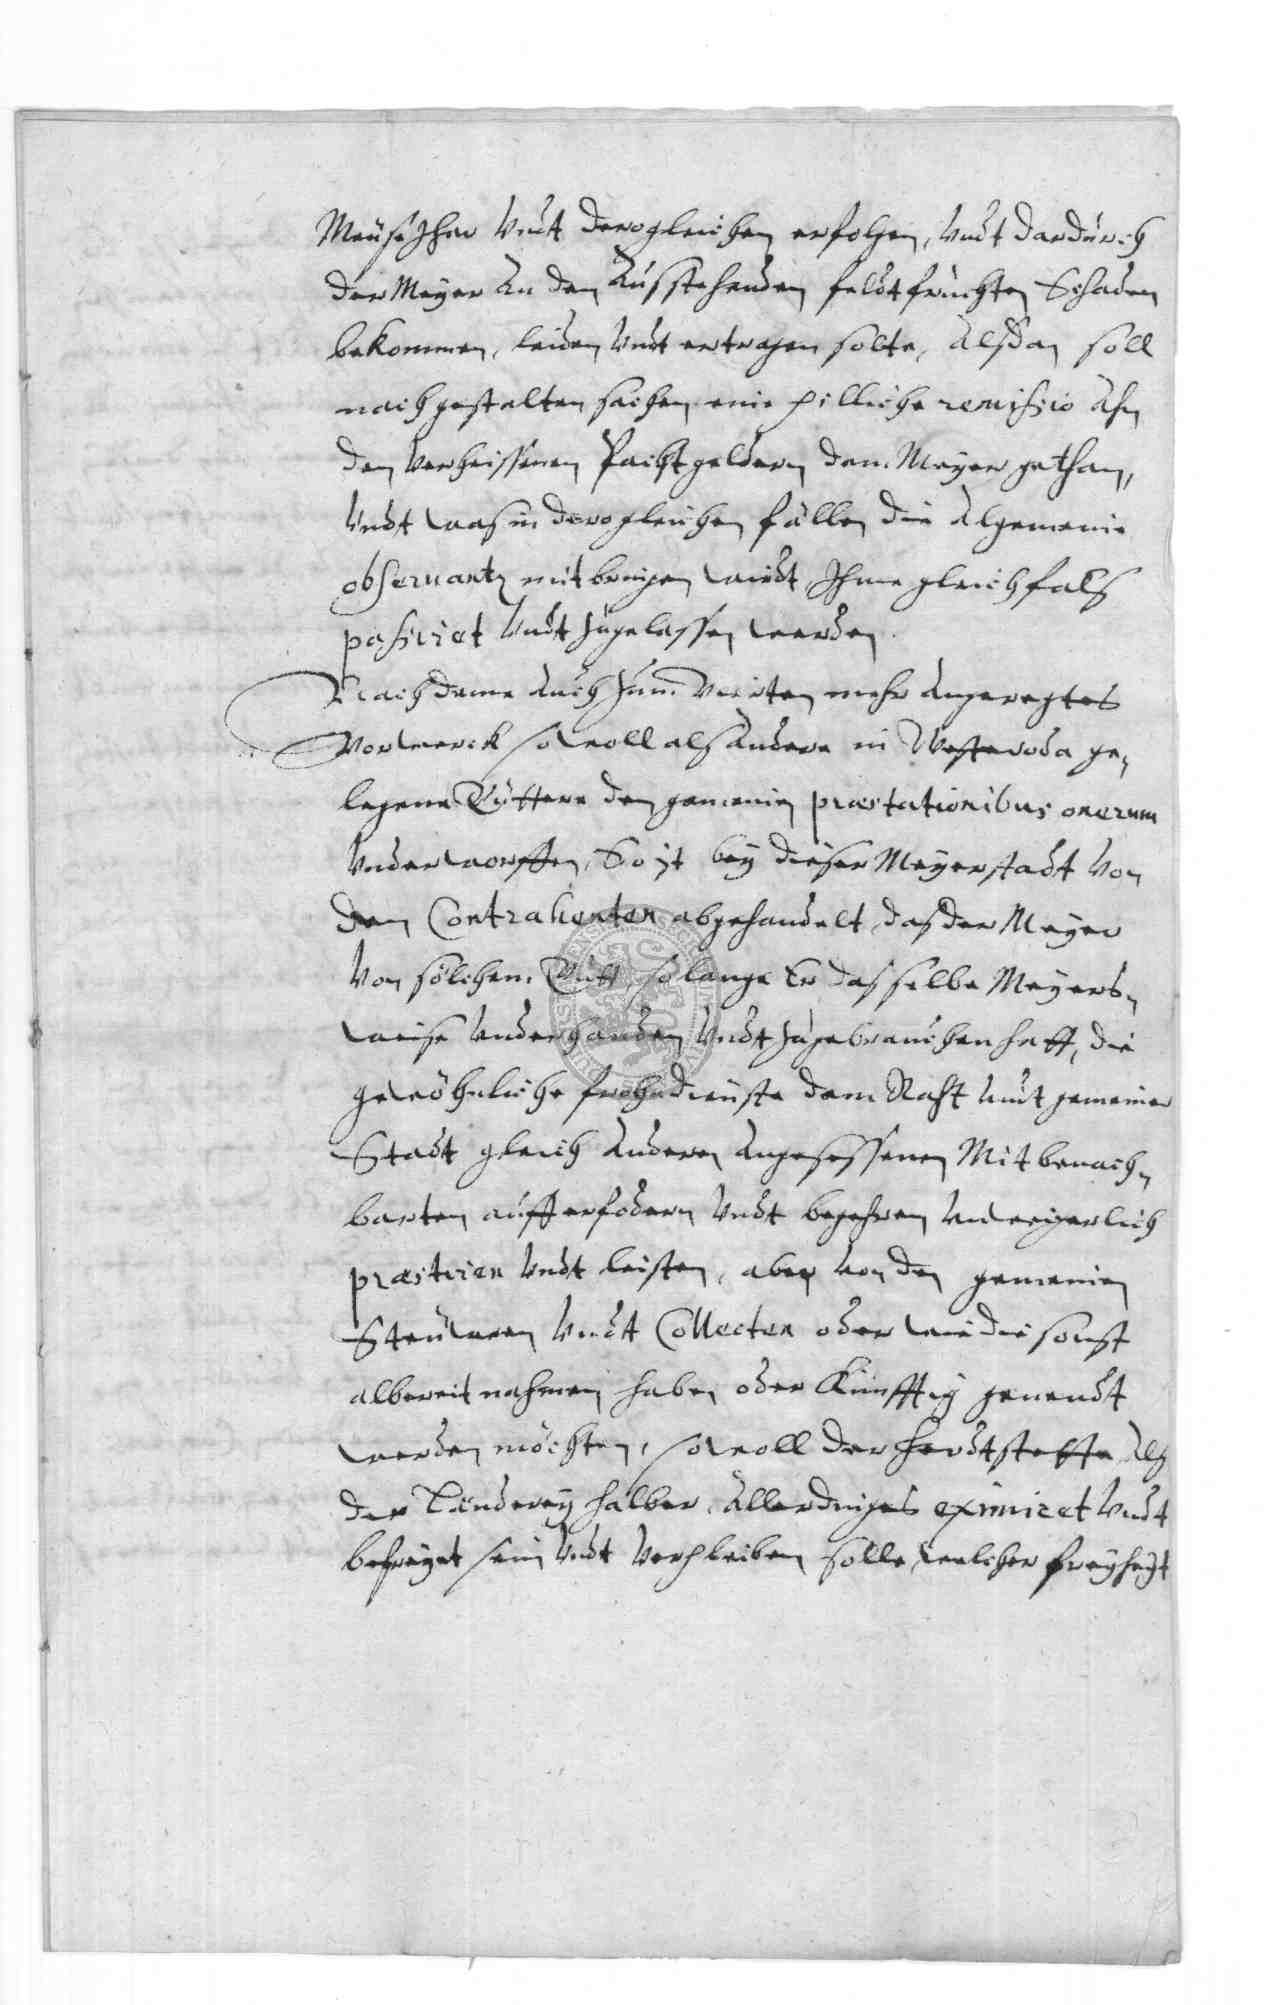 Meuse Jhar vndt dero gleichen erfolgen, vndt dardurch
der Meyer an den Ausstehenden feldt fruchten Schaden
bekommen, leiden vndt ertragen solte, alsdan soll
nach gestalten sachen eine pilliche remissio ahn
den verheissenen Pacht geldern dem Meyer gethan,
vndt was in dero gleichen fällen die algemeine
obseruantz mit bringen wirdt, Ihme gleichfals
passiret vndt zugelassen werden.
Nach deme auch zum vierten mehr angeregtes
Vorwerck sowoll als andere in Westeroda ge„
legene Güttere den gemeinen præstationibus onerum
vnderworffen, So ist bey dieser Meyerstadt von
den Contrahenten abgehandelt, das der Meyer
von solchem Gutt, so lange Er dasselbe Meyers„
weise vnderhanden vndt zugebrauchen hatt, die
gewöhnliche frohndienste dem Raht vndt gemeiner
Stadt gleich anderen angesessenen Mitbenach„
barten auff erfodern vndt begehren vnweigerlich
præstiren vndt leisten, aber von den gemeinen
Steuweren vndt Collecten oder wie die sonst
albereit nahmen haben oder Künfftig genendt
werden möchten, sowoll der herdtstette als
der Länderey halber, allerdinges eximiret vndt
befreyet sein vndt verpleiben solle, welcher freyheyt